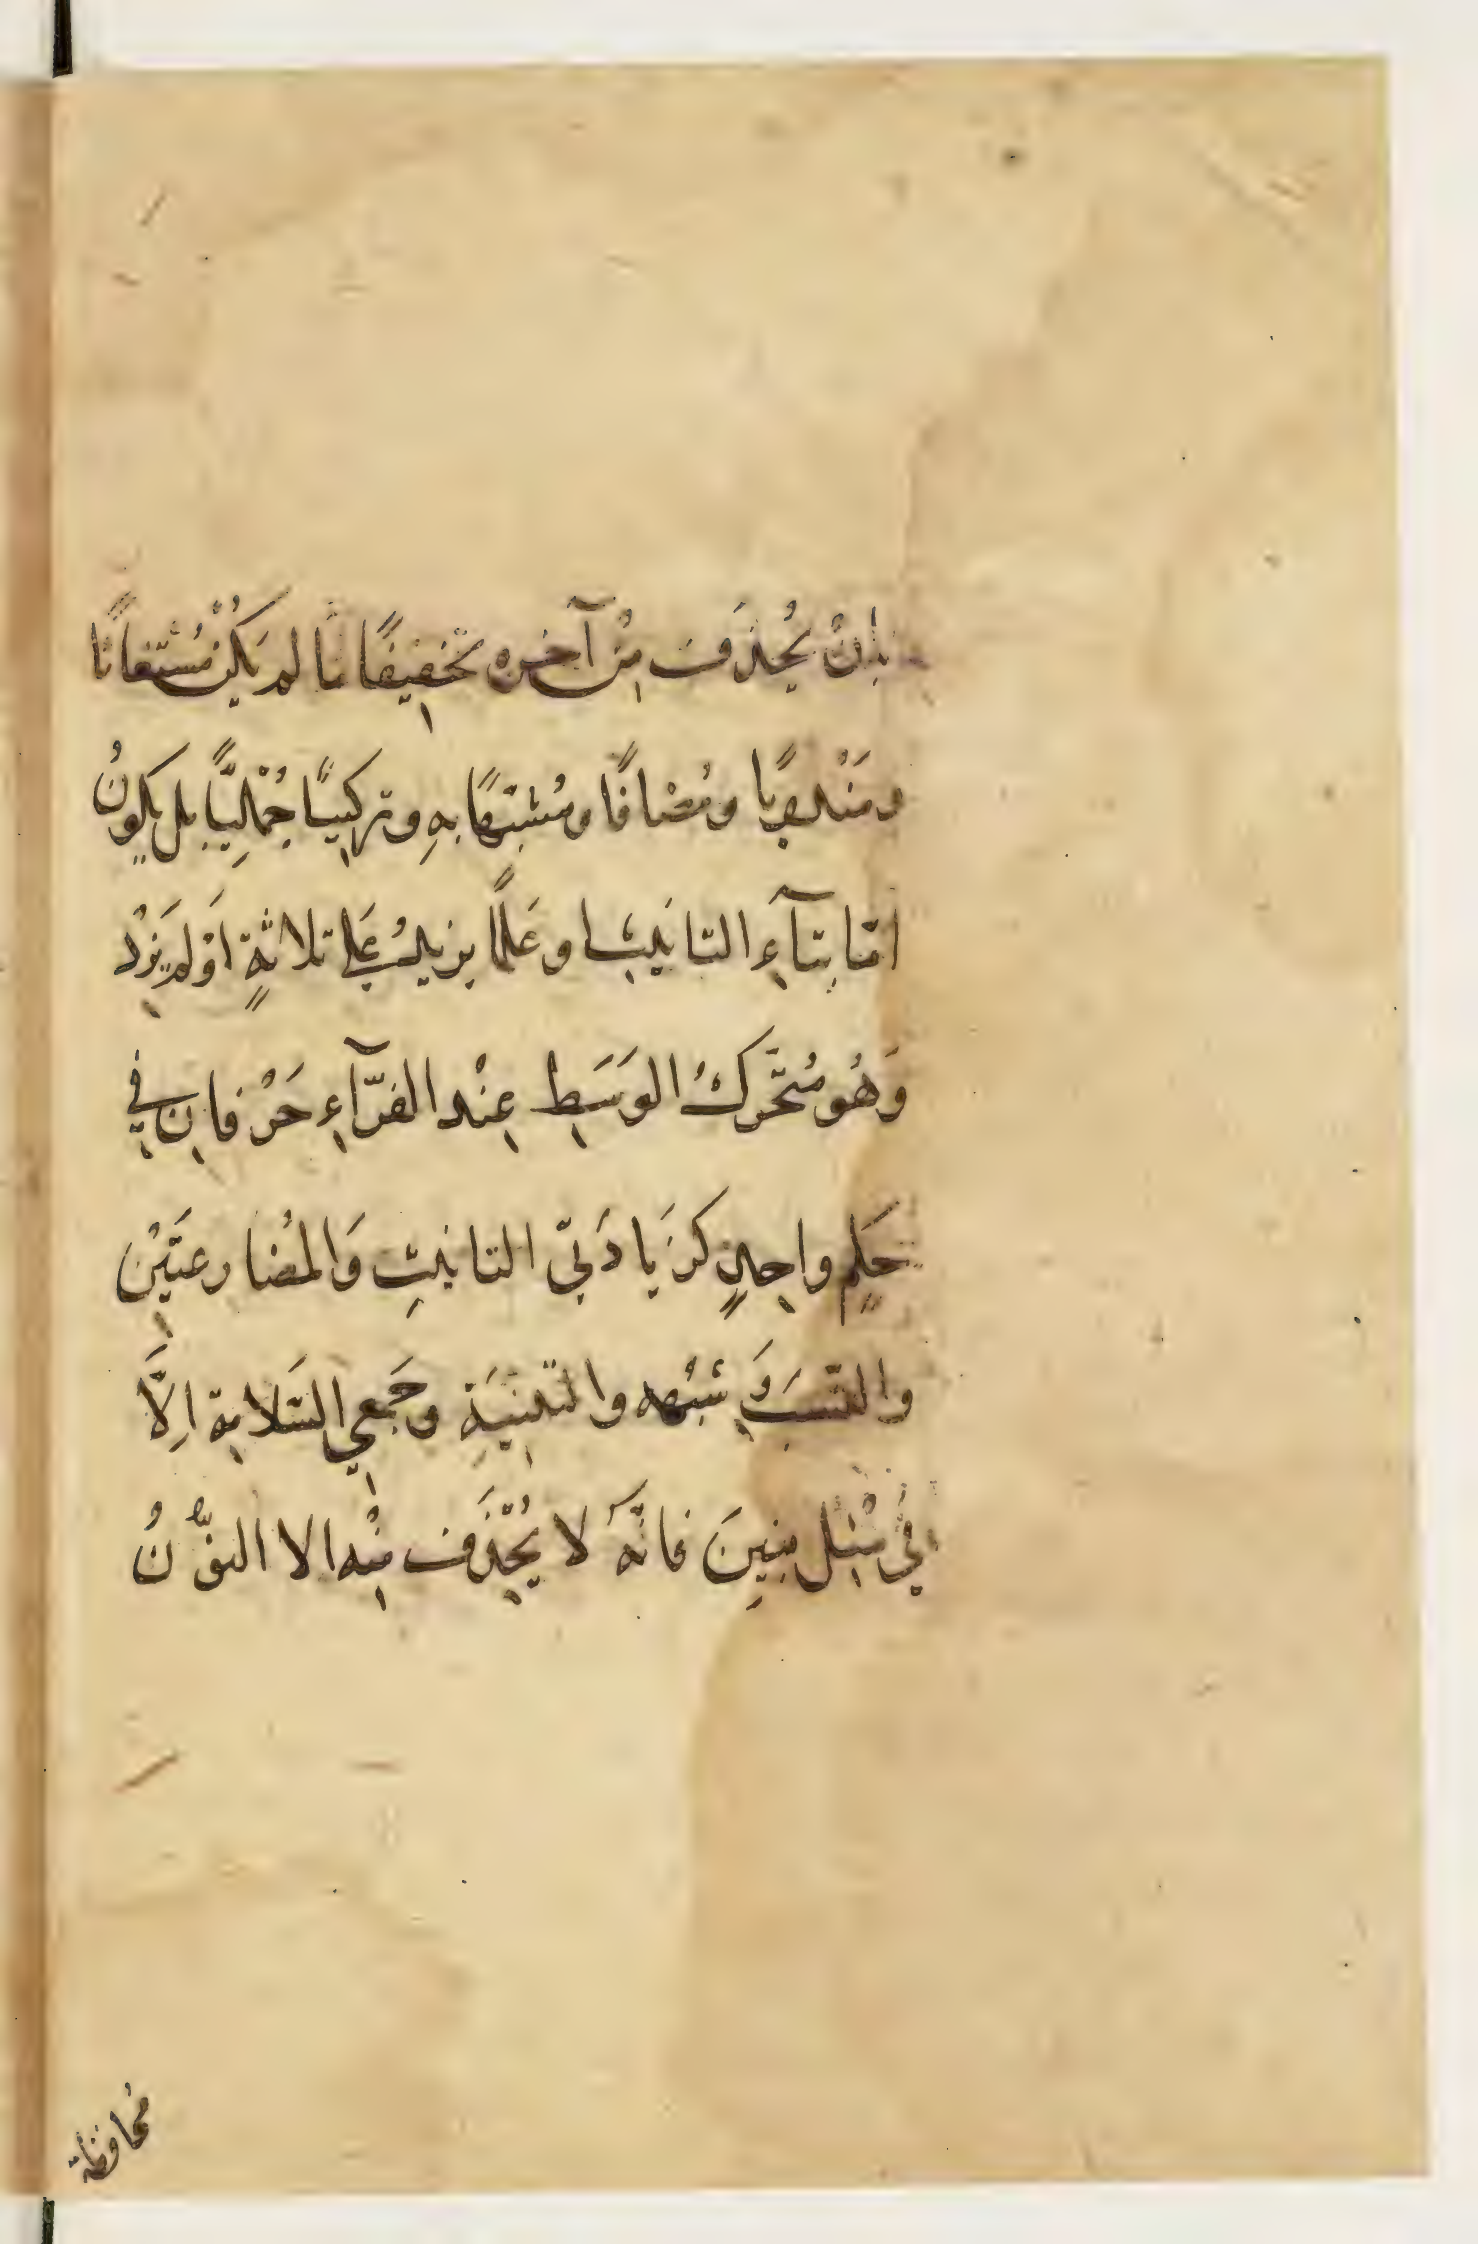 بِاَنْ يُحْذَفَ مِنْ آخره تخفيفًا مَا لم يَكُنْ مُسْتَغاثًا
ومَنْدوبًا ومُضافًا ومُشَبَّهًا بهِ وتركيبًا جُمَلِيًّا بل يكونُ
امّا بتآءِ التانيث او عَلَمًا يزيدُ عَلى ثلاثةٍ اَوْ لم يَزِدْ
وَهُو مُتَحَّركُ الوَسَطِ عِنْد الفرّآءِ حَرْفانِ في
حُكمٍ واحدٍ كزَيادَتىّ التانيثِ وَالمُضارعتَيْنِ
والنسَب وَشِبْهه والتثنيَةِ وجَمْعي السَّلامة اِلاَّ
في مثل بنينَ فانَّهُ لا يُحْذَف مِنْه الا النوُّنُ
مُحافظة